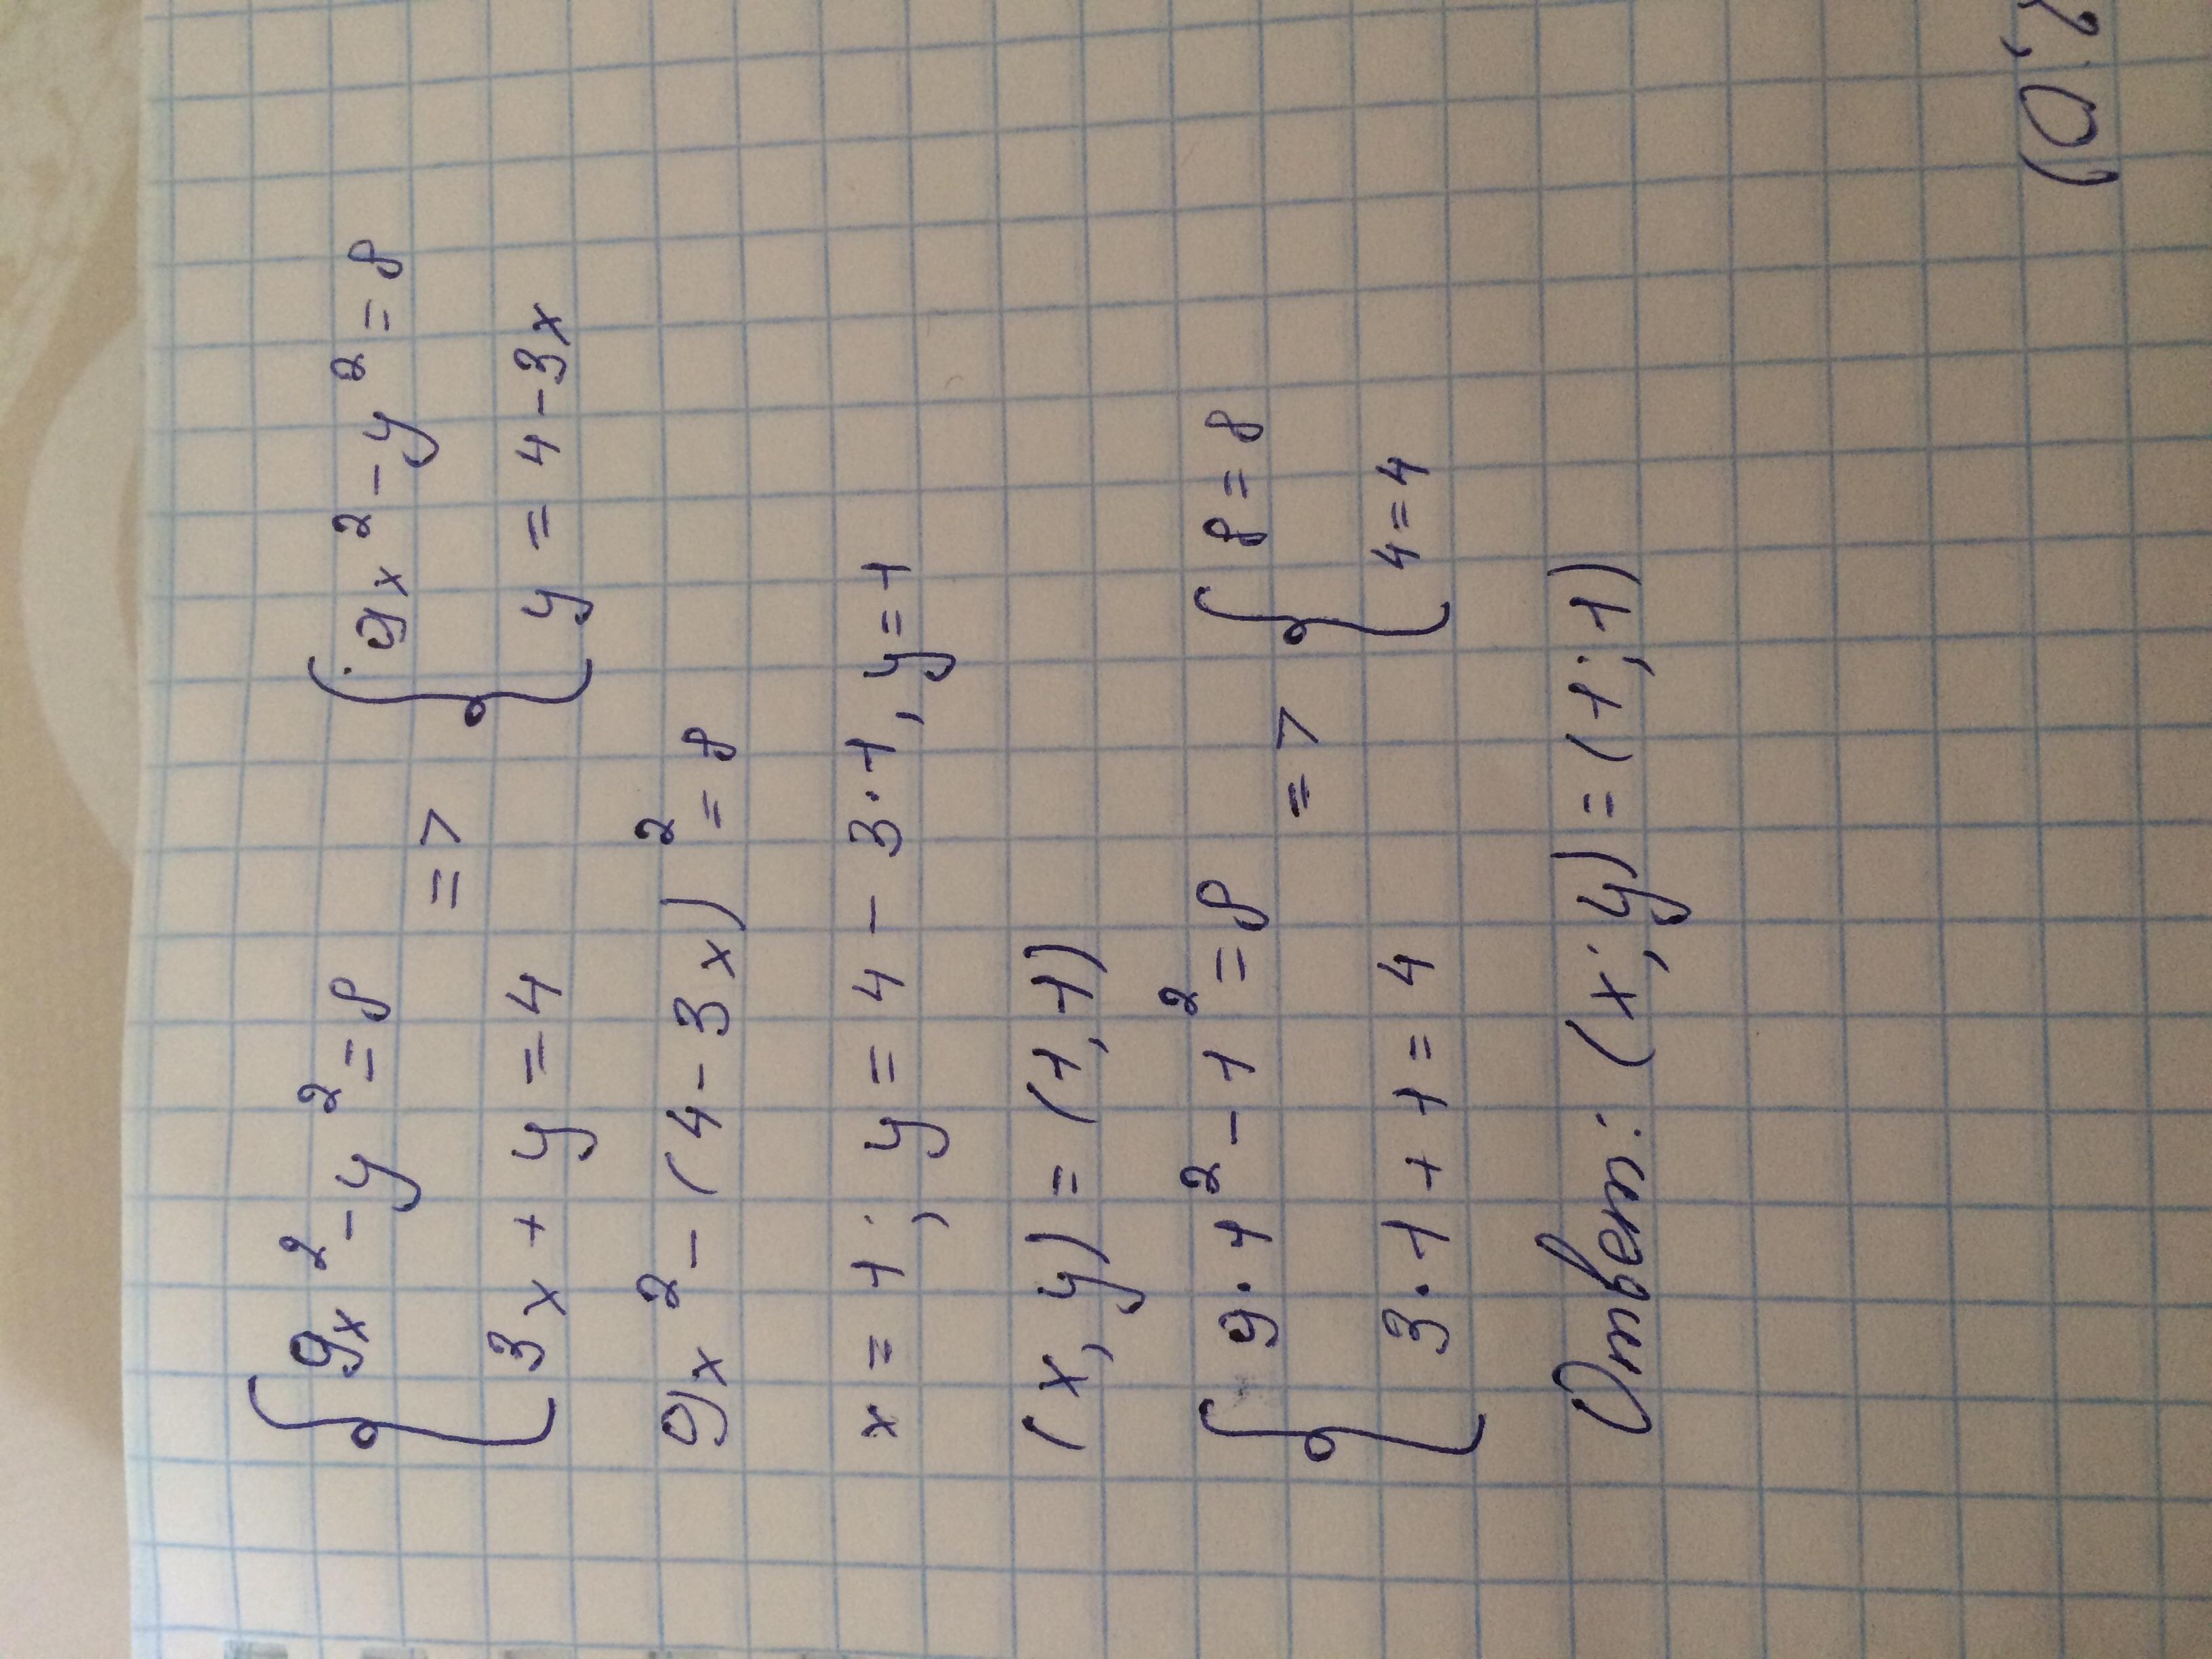 { 9x² - y² = 8 => { 9x² - y² = 8
3x + y = 4 y = 4 - 3x
9x² - (4 - 3x)² = 8
x = 1; y = 4 - 3·1, y = 1
(x, y) = (1, 1)
{ 9·1² - 1² = 8 => { 8 = 8
3·1 + 1 = 4 4 = 4
Ответ: (x; y) = (1; 1)
; 0)